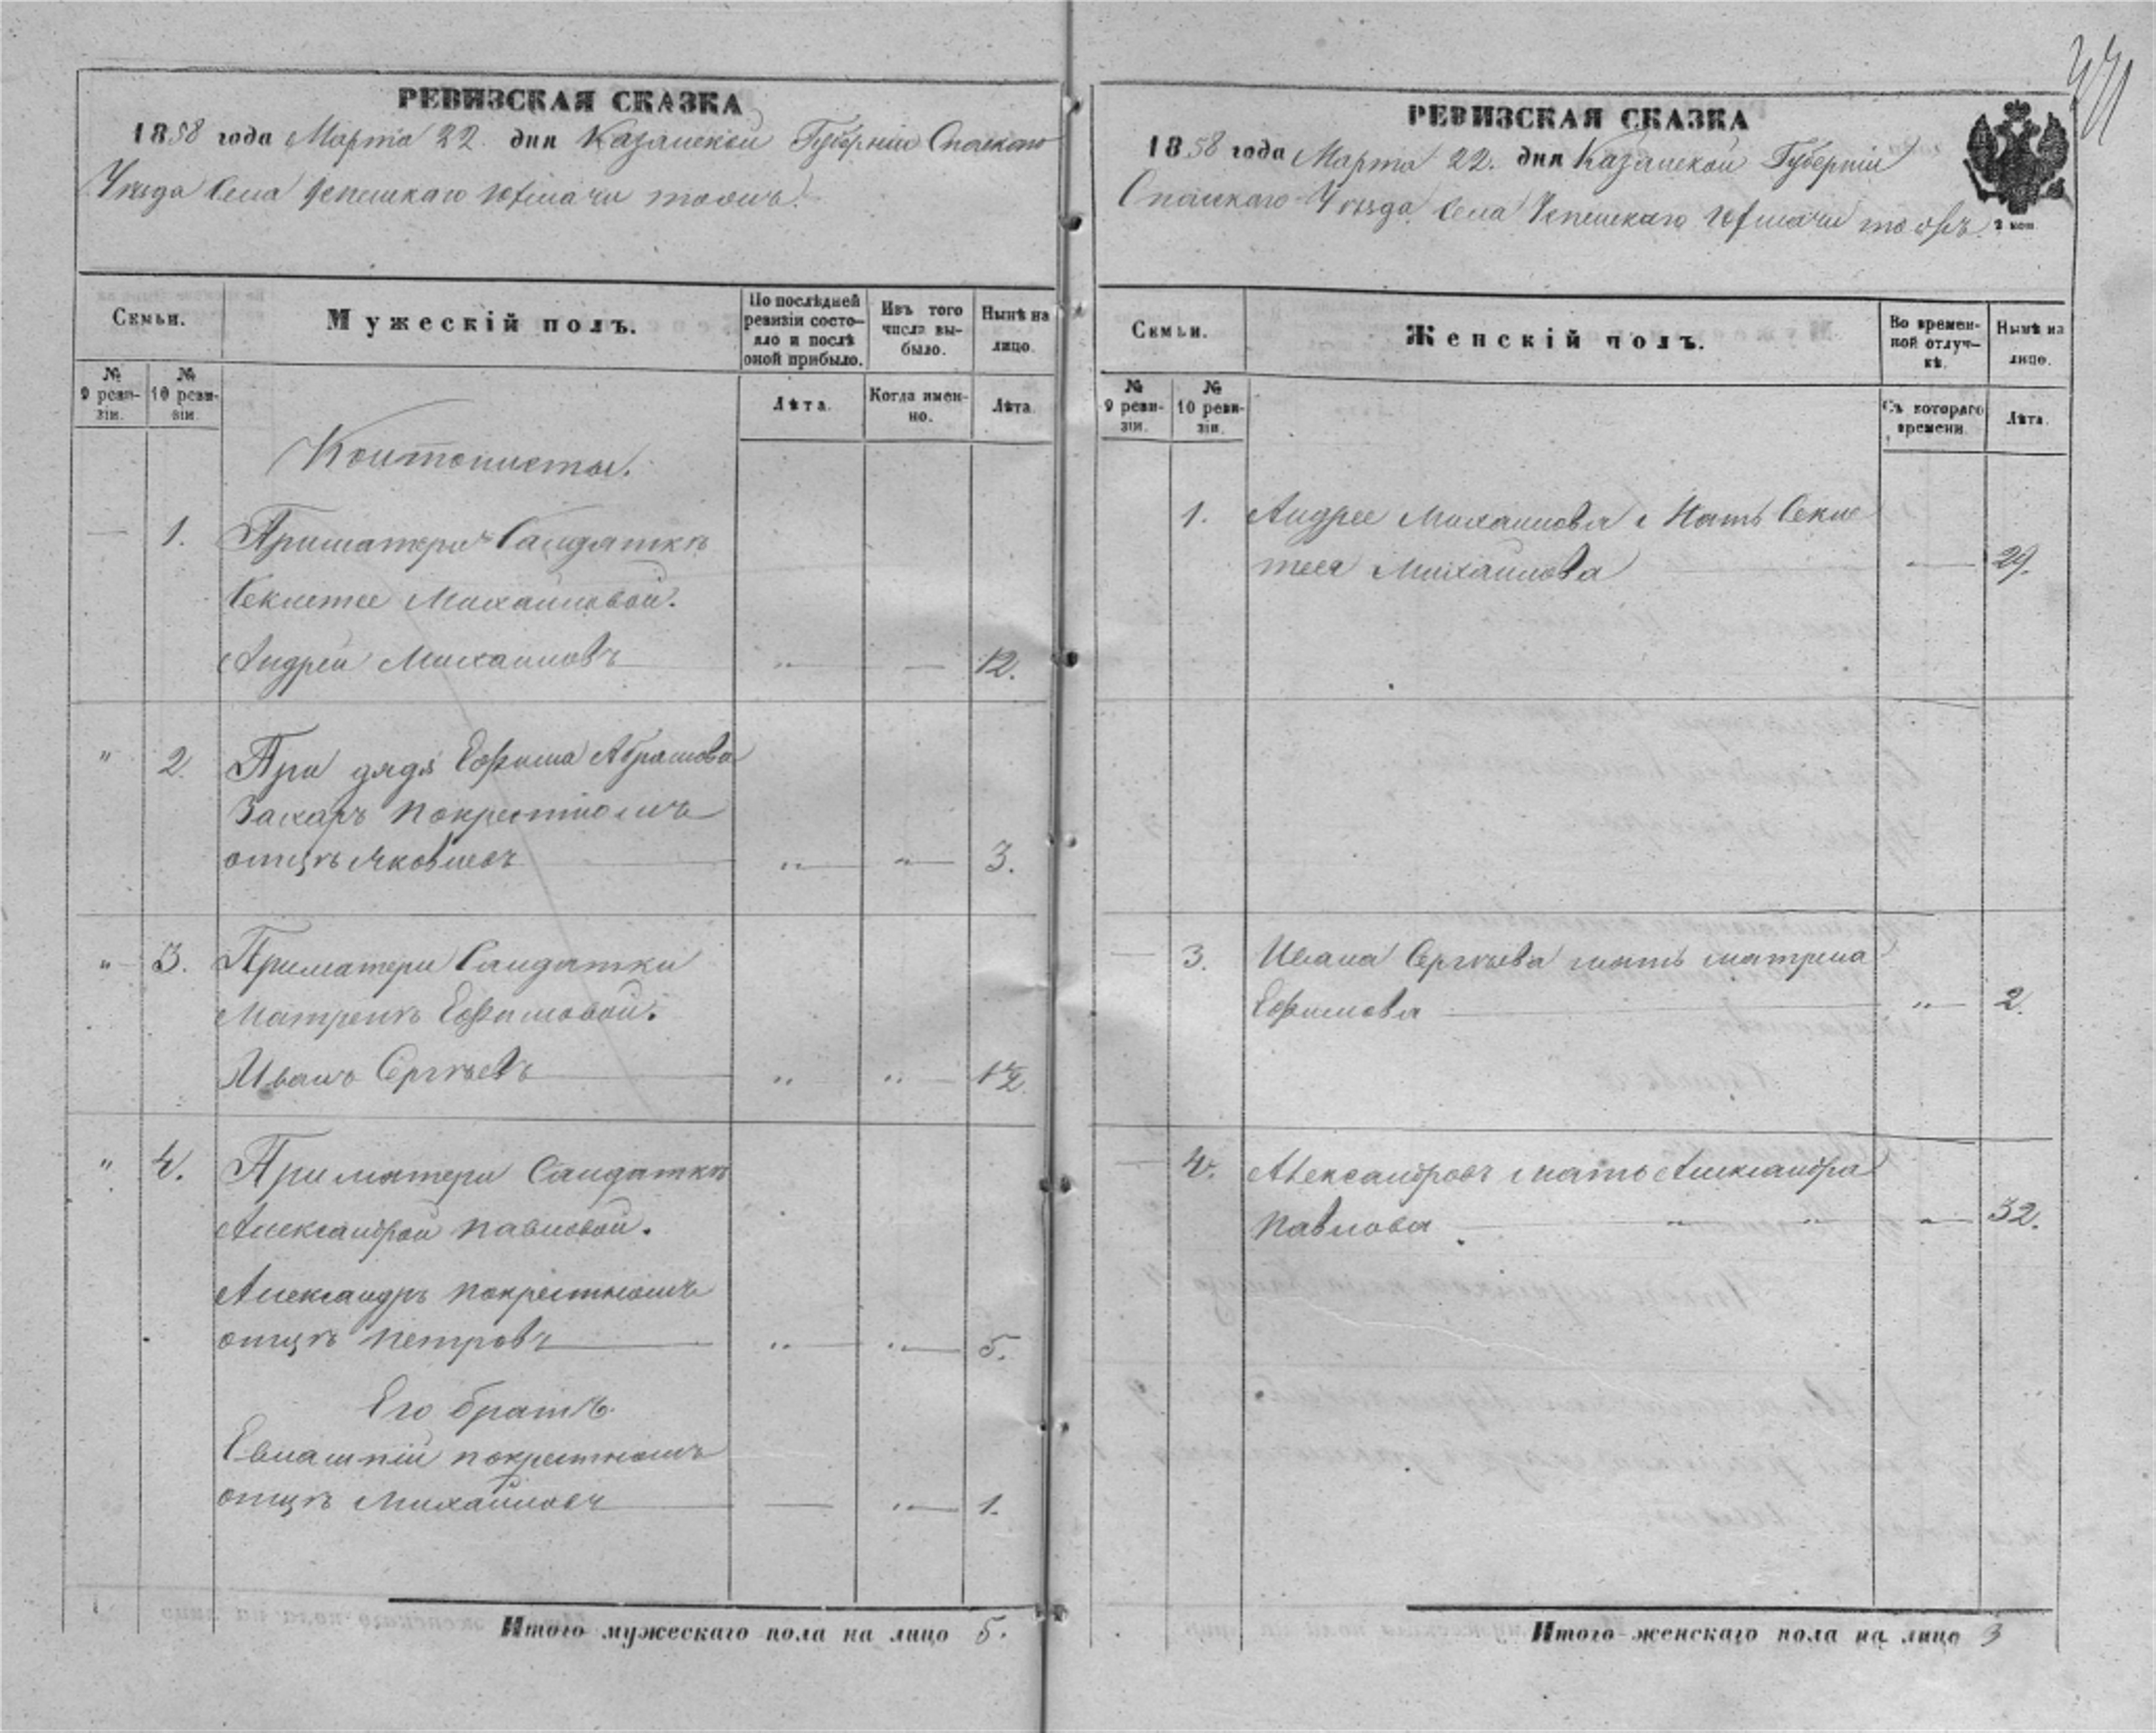 РЕВИЗСКАЯ СКАЗКА
1858 года Марта 22. дня Казанской Губернии Спаскаго
Уѣзда Села Успенскаго тожъ.
Семьи.
Мужескій полъ.
По послѣдней ревизіи состо-яло и послѣ оной прибыло.
Изъ того числа вы-было.
Нынѣ на лицо.
№ 9 реви-зіи.
№ 10 реви-зіи.
Лѣта.
Когда имен-но.
Лѣта.
Контонисты.
— 1. Приматери Салдаткѣ
Феклетее Михайловой.
Андрей Михаиловъ „ — — 12.
„ 2. При дядѣ Ефима Абрамова
Захаръ покрестномъ
отцѣ Яковлевъ „ — „ — 3.
„ 3. Приматери Салдатки
Матренѣ Ефимовой.
Иванъ Сергѣевъ „ „ — 1/2
„ 4. Приматери Салдаткѣ
Александрой Павловой.
Александръ покрестномъ
отцѣ Петровъ „ — „ — 5.
Его братъ
Евлампій покрестномъ
отцѣ Михайловъ — „ — 1.
Итого мужескаго пола на лицо 5.
РЕВИЗСКАЯ СКАЗКА
1858 года Марта 22. дня Казанской Губерніи
Спаскаго Уѣзда Села Успенскаго тожъ.
2 коп
Семьи.
Женскій полъ.
Во времен-ной отлуч-кѣ.
Нынѣ на лицо.
№ 9 реви-зіи.
№ 10 реви-зіи.
Съ котораго времени.
Лѣта.
1. Андрея Михаилова Мать Фекле
тея Михаилова — 29.
— 3. Ивана Сергѣева мать матрена
Ефимова „ — 2.
— 4. Александровъ мать Александра
Павлова — „ „ „ — 32.
Итого женскаго пола на лицо 3